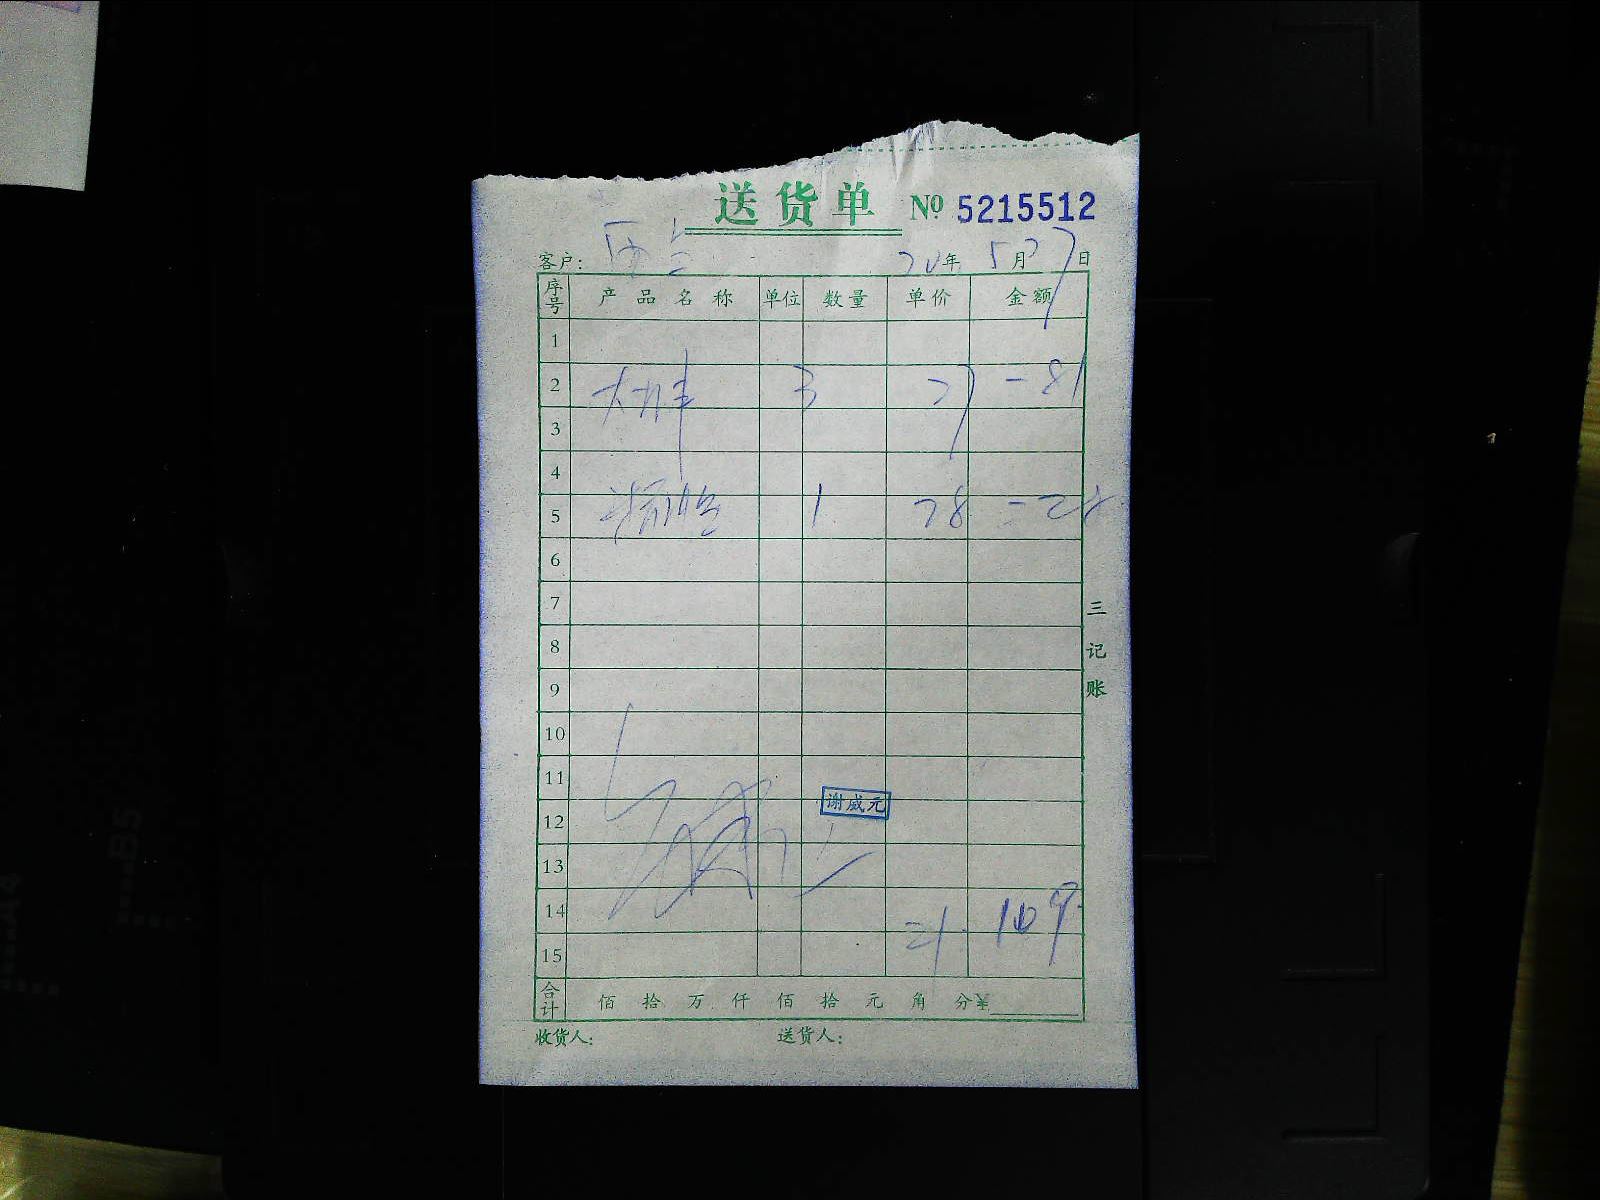 送货单 № 5215512
客户: 20年 5月27日
序号 产品名称 单位 数量 单价 金额
1
2 3 27 - 81
3
4
5 1 28 = 28
6
7
8
9
10
11
谢威元
12
13
14 计. 109.
15
合计 佰 拾 万 仟 佰 拾 元 角 分¥
收货人: 送货人:
三记账
B5
A4